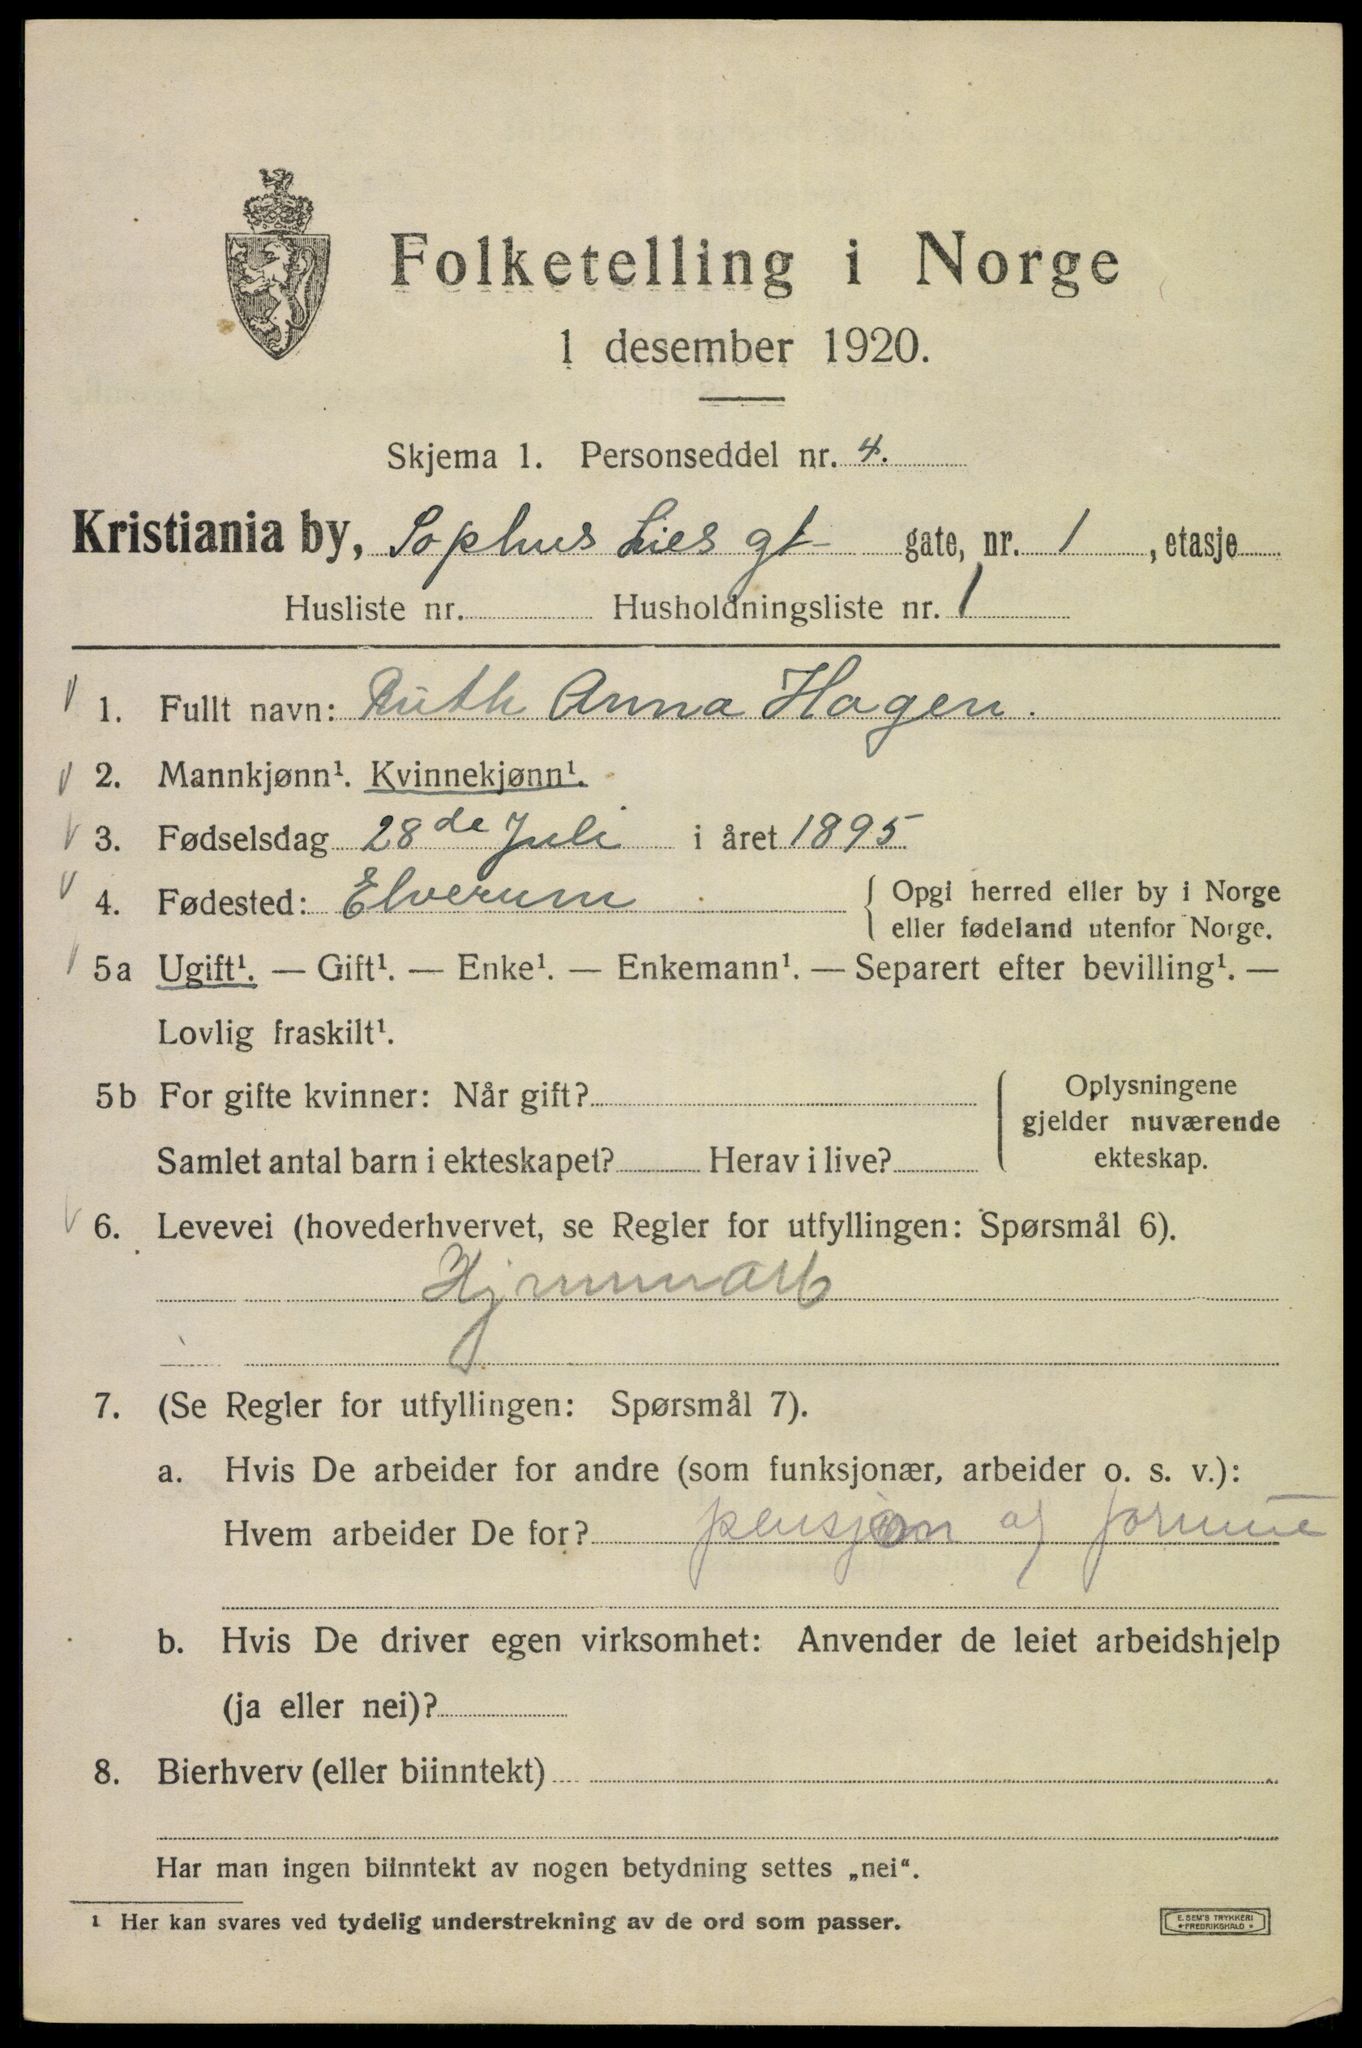 Folketelling i Norge
1 desember 1920.
Skjema 1. Personseddel nr. 4.
Kristiania by, Sophus Lies gt gate, nr. 1, etasje
Husliste nr. Husholdningsliste nr. 1
1. Fullt navn: Ruth Anna Hagen.
2. Mannkjønn¹. Kvinnekjønn¹.
3. Fødselsdag 28de Juli i året 1895.
4. Fødested: Elverum { Opgi herred eller by i Norge
eller fødeland utenfor Norge.
5a Ugift¹. — Gift¹. — Enke¹. — Enkemann¹. — Separert efter bevilling¹. —
Lovlig fraskilt¹.
5b For gifte kvinner: Når gift?
Samlet antal barn i ekteskapet? Herav i live?
Oplysningene
gjelder nuværende
ekteskap.
6. Levevei (hovederhvervet, se Regler for utfyllingen: Spørsmål 6).
Hjemmarb
7. (Se Regler for utfyllingen: Spørsmål 7).
a. Hvis De arbeider for andre (som funksjonær, arbeider o. s. v.):
Hvem arbeider De for? pensjon og formue
b. Hvis De driver egen virksomhet: Anvender de leiet arbeidshjelp
(ja eller nei)?
8. Bierhverv (eller biinntekt)
Har man ingen biinntekt av nogen betydning settes „nei“.
¹ Her kan svares ved tydelig understrekning av de ord som passer.
E. SEM'S TRYKKERI
FREDRIKSHALD